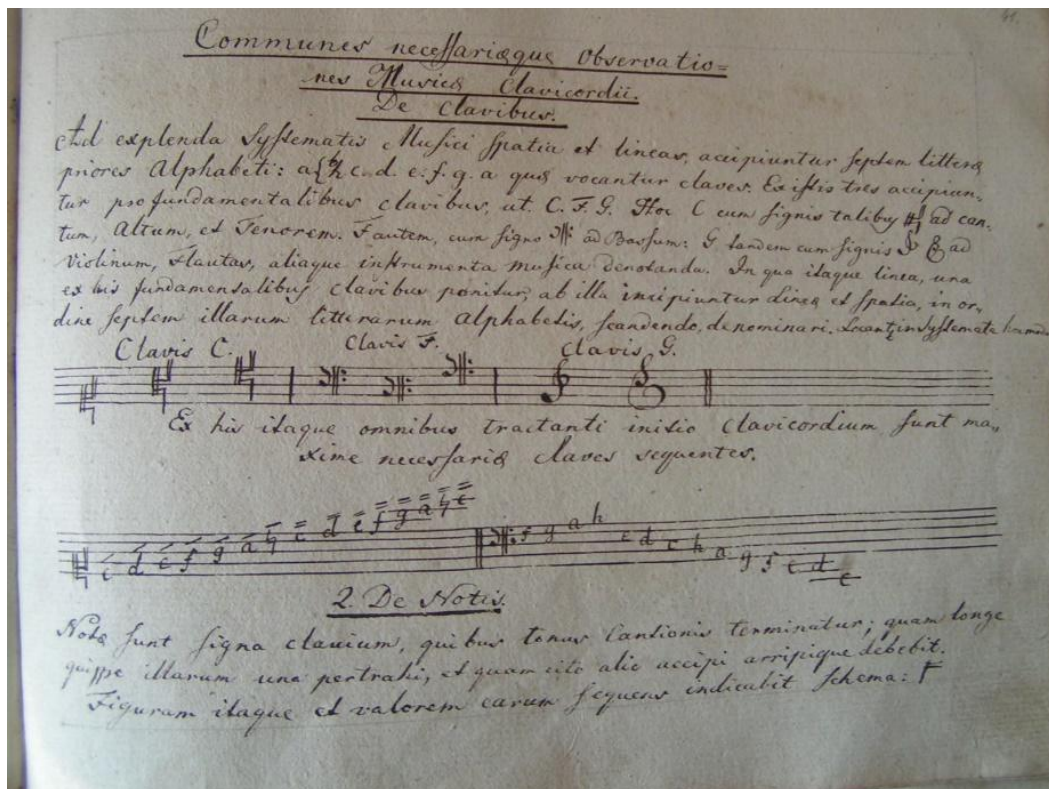 41.
Communes necessariæque observatio=
nes Musicæ Clavicordii.
De Clavibus.
Ad explenda Systematis Musici spatia et lineas, accipiuntur septem litteræ
priores Alphabeti: a{♮ c. d. e. f. g. a quæ vocantur claves. Ex istis tres accipiun-
tur pro fundamentalibus clavibus, ut. C. F. G. Hoc C cum signis talibus ad can-
tum, Altum, et Tenorem. F autem, cum signo ad Bassum: G tandem cum signis ad
Violinum, Flautas, aliaque instrumenta musica denotanda. In qua itaque linea, una
ex his fundamentalibus clavibus ponitur, ab illa incipiuntur lineæ et spatia, in or-
dine septem illarum litterarum Alphabetis, scandendo, denominari. Locantur in Systemate
Clavis C. Clavis F. Clavis G.
Ex his itaque omnibus tractanti initio Clavicordium sunt ma-
xime necessariæ claves sequentes.
c d e f g a ♮ c d e f g a ♮ c f g a h c d c h a g f e d c
2. De Notis.
Notæ sunt signa clavium, quibus tonus Cantionis terminatur; quam longe
quippe illarum una pertrahi, et quam cito alie accipi arripique debebit.
Figuram itaque et valorem earum sequens indicabit schema: